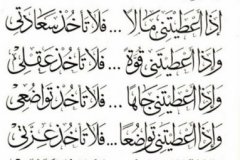 إِذَا أَعْطَيْتَنِي مَالًا ... فَلَا تَأْخُذْ سَعَادَتِي
وَإِذَا أَعْطَيْتَنِي قُوَّةً ... فَلَا تَأْخُذْ عَقْلِي
وَإِذَا أَعْطَيْتَنِي جَاهًا ... فَلَا تَأْخُذْ تَوَاضُعِي
وَإِذَا أَعْطَيْتَنِي تَوَاضُعًا ... فَلَا تَأْخُذْ عِزَّتِي